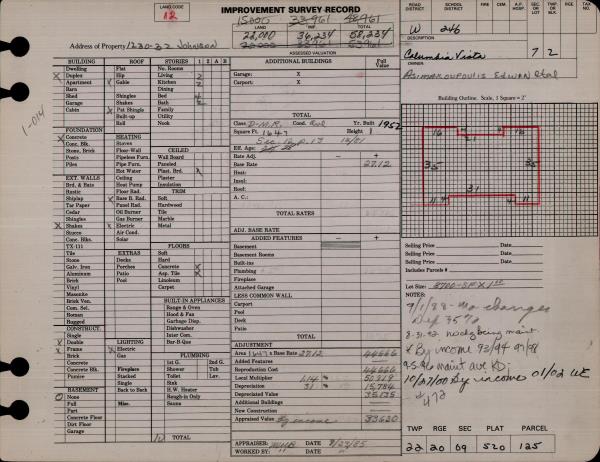 LAND CODE
12
IMPROVEMENT SURVEY RECORD
LAND IMP. TOTAL
22,000 36,234 58,234
Address of Property 1230-32 Johnson
ASSESSED VALUATION
ROAD DISTRICT SCHOOL DISTRICT FIRE CEM. A.P. HOSP. SEC. OR LOT TAX NO.
W 246
DESCRIPTION
Columbia Vista 7 2
OWNER
Asimakoupoulis Edwan etal
Building Outline. Scale, 1 Square = 2'
16 4 21 4 16
35 35
31
11 4 4 11
1-014
BUILDING
Dwelling
Duplex
Apartment
Barn
Shed
Garage
Cabin
FOUNDATION
Concrete
Conc. Blks.
Stone, Brick
Posts
Piles
EXT. WALLS
Brd. & Bats
Rustic
Shiplap
Tar Paper
Cedar
Shingles
Shakes
Stucco
Conc. Blks.
TX-111
Tile
Stone
Galv. Iron
Aluminum
Vinyl
Masonite
Brick Ven.
Com. Sel.
Roman
Rugged
CONSTRUCT.
Single
Double
Frame
Brick
Concrete
Concrete Blk.
Pumice
BASEMENT
None
Full
Part
Concrete Floor
Dirt Floor
Garage
ROOF
Flat
Hip
Gable
Shingles
Shakes
Pat Shingle
Built-up
Roll
HEATING
Stoves
Floor-Wall
Pipeless Furn.
Pipe Furn.
Hot Water
Ceiling
Heat Pump
Floor Rad.
Base B. Rad.
Panel Rad.
Oil Burner
Gas Burner
Electric
Air Cond.
Solar
EXTRAS
Decks
Porches
Patio
Pool
LIGHTING
Electric
Gas
Fireplace
Stacked
Single
Back to Back
Misc.
STORIES 1 2 B A
No. Rooms
Living 2
Kitchen 2
Dining
Bed 4
Bath 2
Family
Utility
Nook
CEILING
Wall Board
Paneled
Plast. Brd.
Plaster
Insulation
TRIM
Soft
Hardwood
Tile
Marble
Metal
FLOORS
Soft
Hard
Concrete
Asp. Tile
Linoleum
Carpet
BUILT IN APPLIANCES
Range & Oven
Hood & Fan
Garbage Disp.
Dishwasher
Inter Com.
Bar-B-Que
PLUMBING
1st G. 2nd G.
Shower Tub
Toilet Lav.
Sink
H.W. Heater
Rough-in Only
Sauna
TOTAL
ADDITIONAL BUILDINGS Full Value
Garage: X
Carport: X
TOTAL
Class D-M.R. Cond. Yr. Built 1952
Square Ft. 1647 Height 1
Eff. Age:
Rate Adj. − +
Base Rate 27.12
Heat:
Insul:
Roof:
A. C.:
TOTAL RATES
ADJ. BASE RATE
ADDED FEATURES − +
Basement
Basement Rooms
Built-ins
Plumbing
Fireplace
Attached Garage
LESS COMMON WALL
Carport
Pool
Deck
Patio
TOTAL
ADJUSTMENT
Area 1647 x Base Rate 27.12 44666
Added Features
Reproduction Cost 44666
Local Multiplier 1.14 50919
Depreciation 31 15,784
Depreciated Value 35135
Additional Buildings
New Construction
Appraised Value By income 33620
APPRAISER: MHB DATE 8/23/85
WORKED BY: DATE
Selling Price Date
Selling Price Date
Selling Price Date
Includes Parcels #
Lot Size: 8700-SF X 1.25
NOTES:
9/1/88 - no changes
Dep 35%
8-31-92 needs being maint.
* By income 93/94 97/98
9-5-96 maint ave KD;
10/27/00 By income 01/02 WE
#472
TWP RGE SEC PLAT PARCEL
22 20 09 520 125